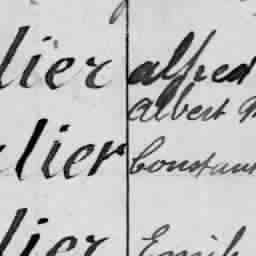 lier alfred
albert
lier Constant
lier Emile